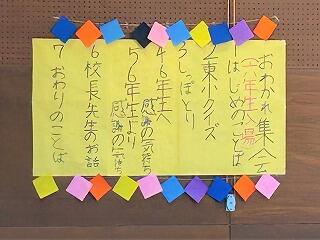 おわかれ集会
(六年生入場)
1 はじめのことば
2 東小クイズ
3 しっぽとり
4 6年生へ
感謝の気持ち
5 6年生より
感謝の気持ち
6 校長先生のお話
7 おわりのことば